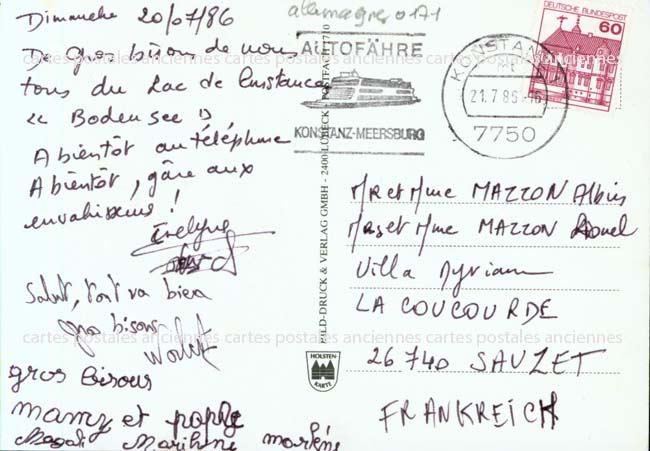 Dimanche 20/07/86
De gros bisous de nous
tous du Lac de Constance
<< Bodensee >>
A bientôt au téléphone
A bientôt, gare aux
envahisseurs !
Evelyne
Salut, tout va bien
gros bisous
gros bisous
mamy et
Magali Marlène
allemagne 0171
AUTOFÄHRE
KONSTANZ-MEERSBURG
KONSTANZ
21.7.86-16
7750
DEUTSCHE BUNDESPOST
60
BILD-DRUCK & VERLAG GMBH - 2400 LÜBECK - POSTFACH 1710
HOLSTEN
KARTE
Mr et Mme MAZZON Albin
Mr et Mme MAZZON Lionel
Villa Myriam
LA COUCOURDE
26740 SAUZET
FRANKREICH
cartes postales anciennes cartes postales anciennes
cartes postales anciennes cartes postales anciennes